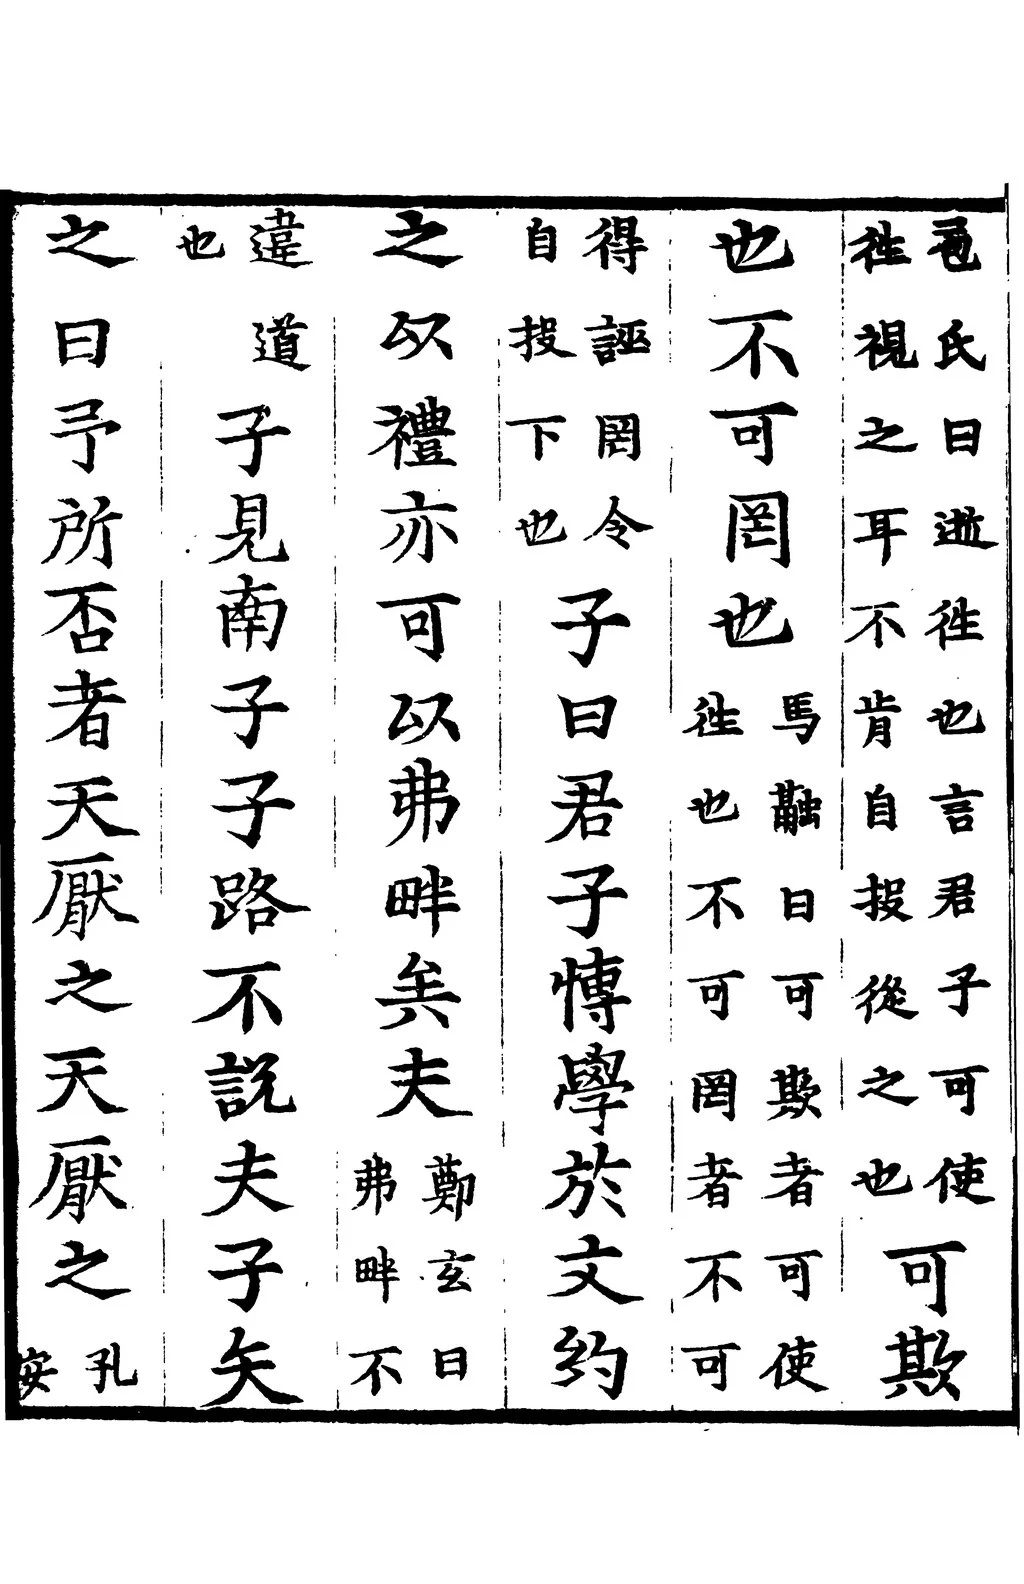 苞氏曰逝徃也言君子可使
徃視之耳不肯自投從之也
可欺
也不可罔也
馬融曰可欺者可使
徃也不可罔者不可
得誣罔令
自投下也
子曰君子博學於文約
之以禮亦可以弗畔矣夫
鄭玄曰
弗畔不
違道
也
子見南子子路不説夫子矢
之曰予所否者天厭之天厭之
孔
安